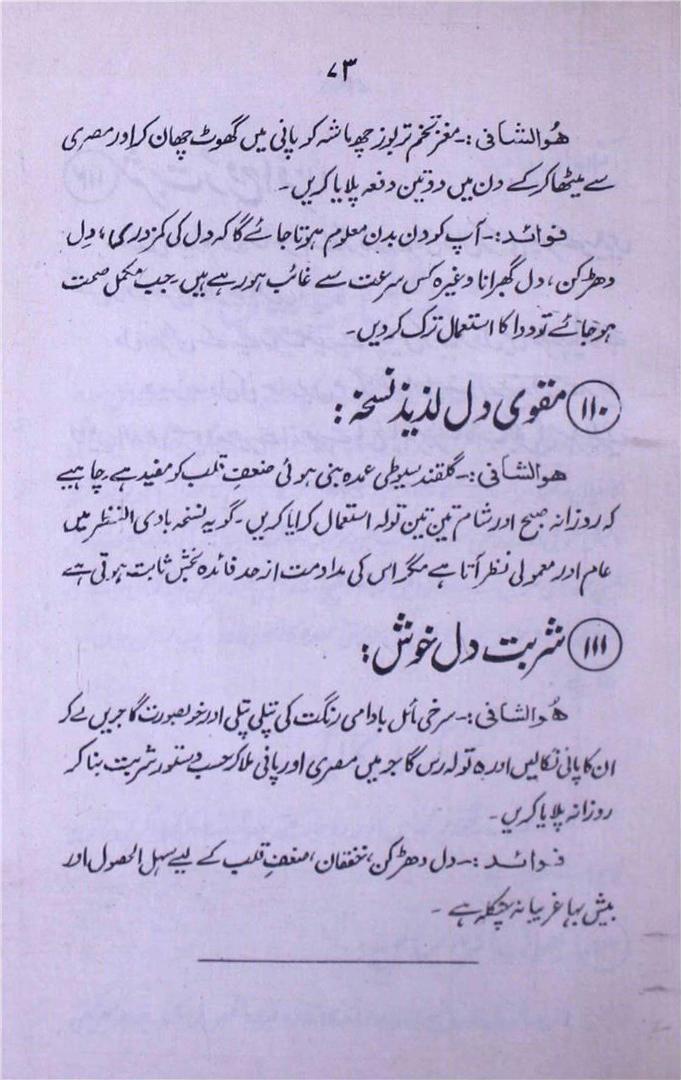 ۷۳
ھُوالشافی:- مغز تخم تربوز چھ ماشہ کو پانی میں گھوٹ چھان کر اور مصری
سے میٹھا کر کے دن میں دو تین دفعہ پلایا کریں۔
فوائد:- آپ کو دن بدن معلوم ہوتا جائے گا کہ دل کی کمزوری، دل
دھڑکن، دل گھبرانا وغیرہ کس سرعت سے غائب ہو رہے ہیں۔ جب مکمل صحت
ہو جائے تو دوا کا استعمال ترک کر دیں۔
۱۱۰ مقوی دل لذیذ نسخہ:
ھوالشافی:- گلقند سیوطی عمدہ بنی ہوئی ضعف قلب کو مفید ہے۔ چاہیے
کہ روزانہ صبح اور شام تین تین تولہ استعمال کرایا کریں۔ گو یہ نسخہ بادی النظر میں
عام اور معمولی نظر آتا ہے مگر اس کی مداومت از حد فائدہ بخش ثابت ہوتی ہے
۱۱۱ شربت دل خوش:
ھُوالشافی:- سرخی مائل بادامی رنگت کی پتلی پتلی اور خوبصورت گاجریں لے کر
ان کا پانی نکالیں اور ۵ تولہ رس گاجر میں مصری اور پانی ملا کر حسب دستور شربت بنا کر
روزانہ پلایا کریں۔
فوائد:- دل دھڑکن، خفقان، ضعفِ قلب کے لیے سہل الحصول اور
بیش بہا غریبانہ چٹکلہ ہے۔